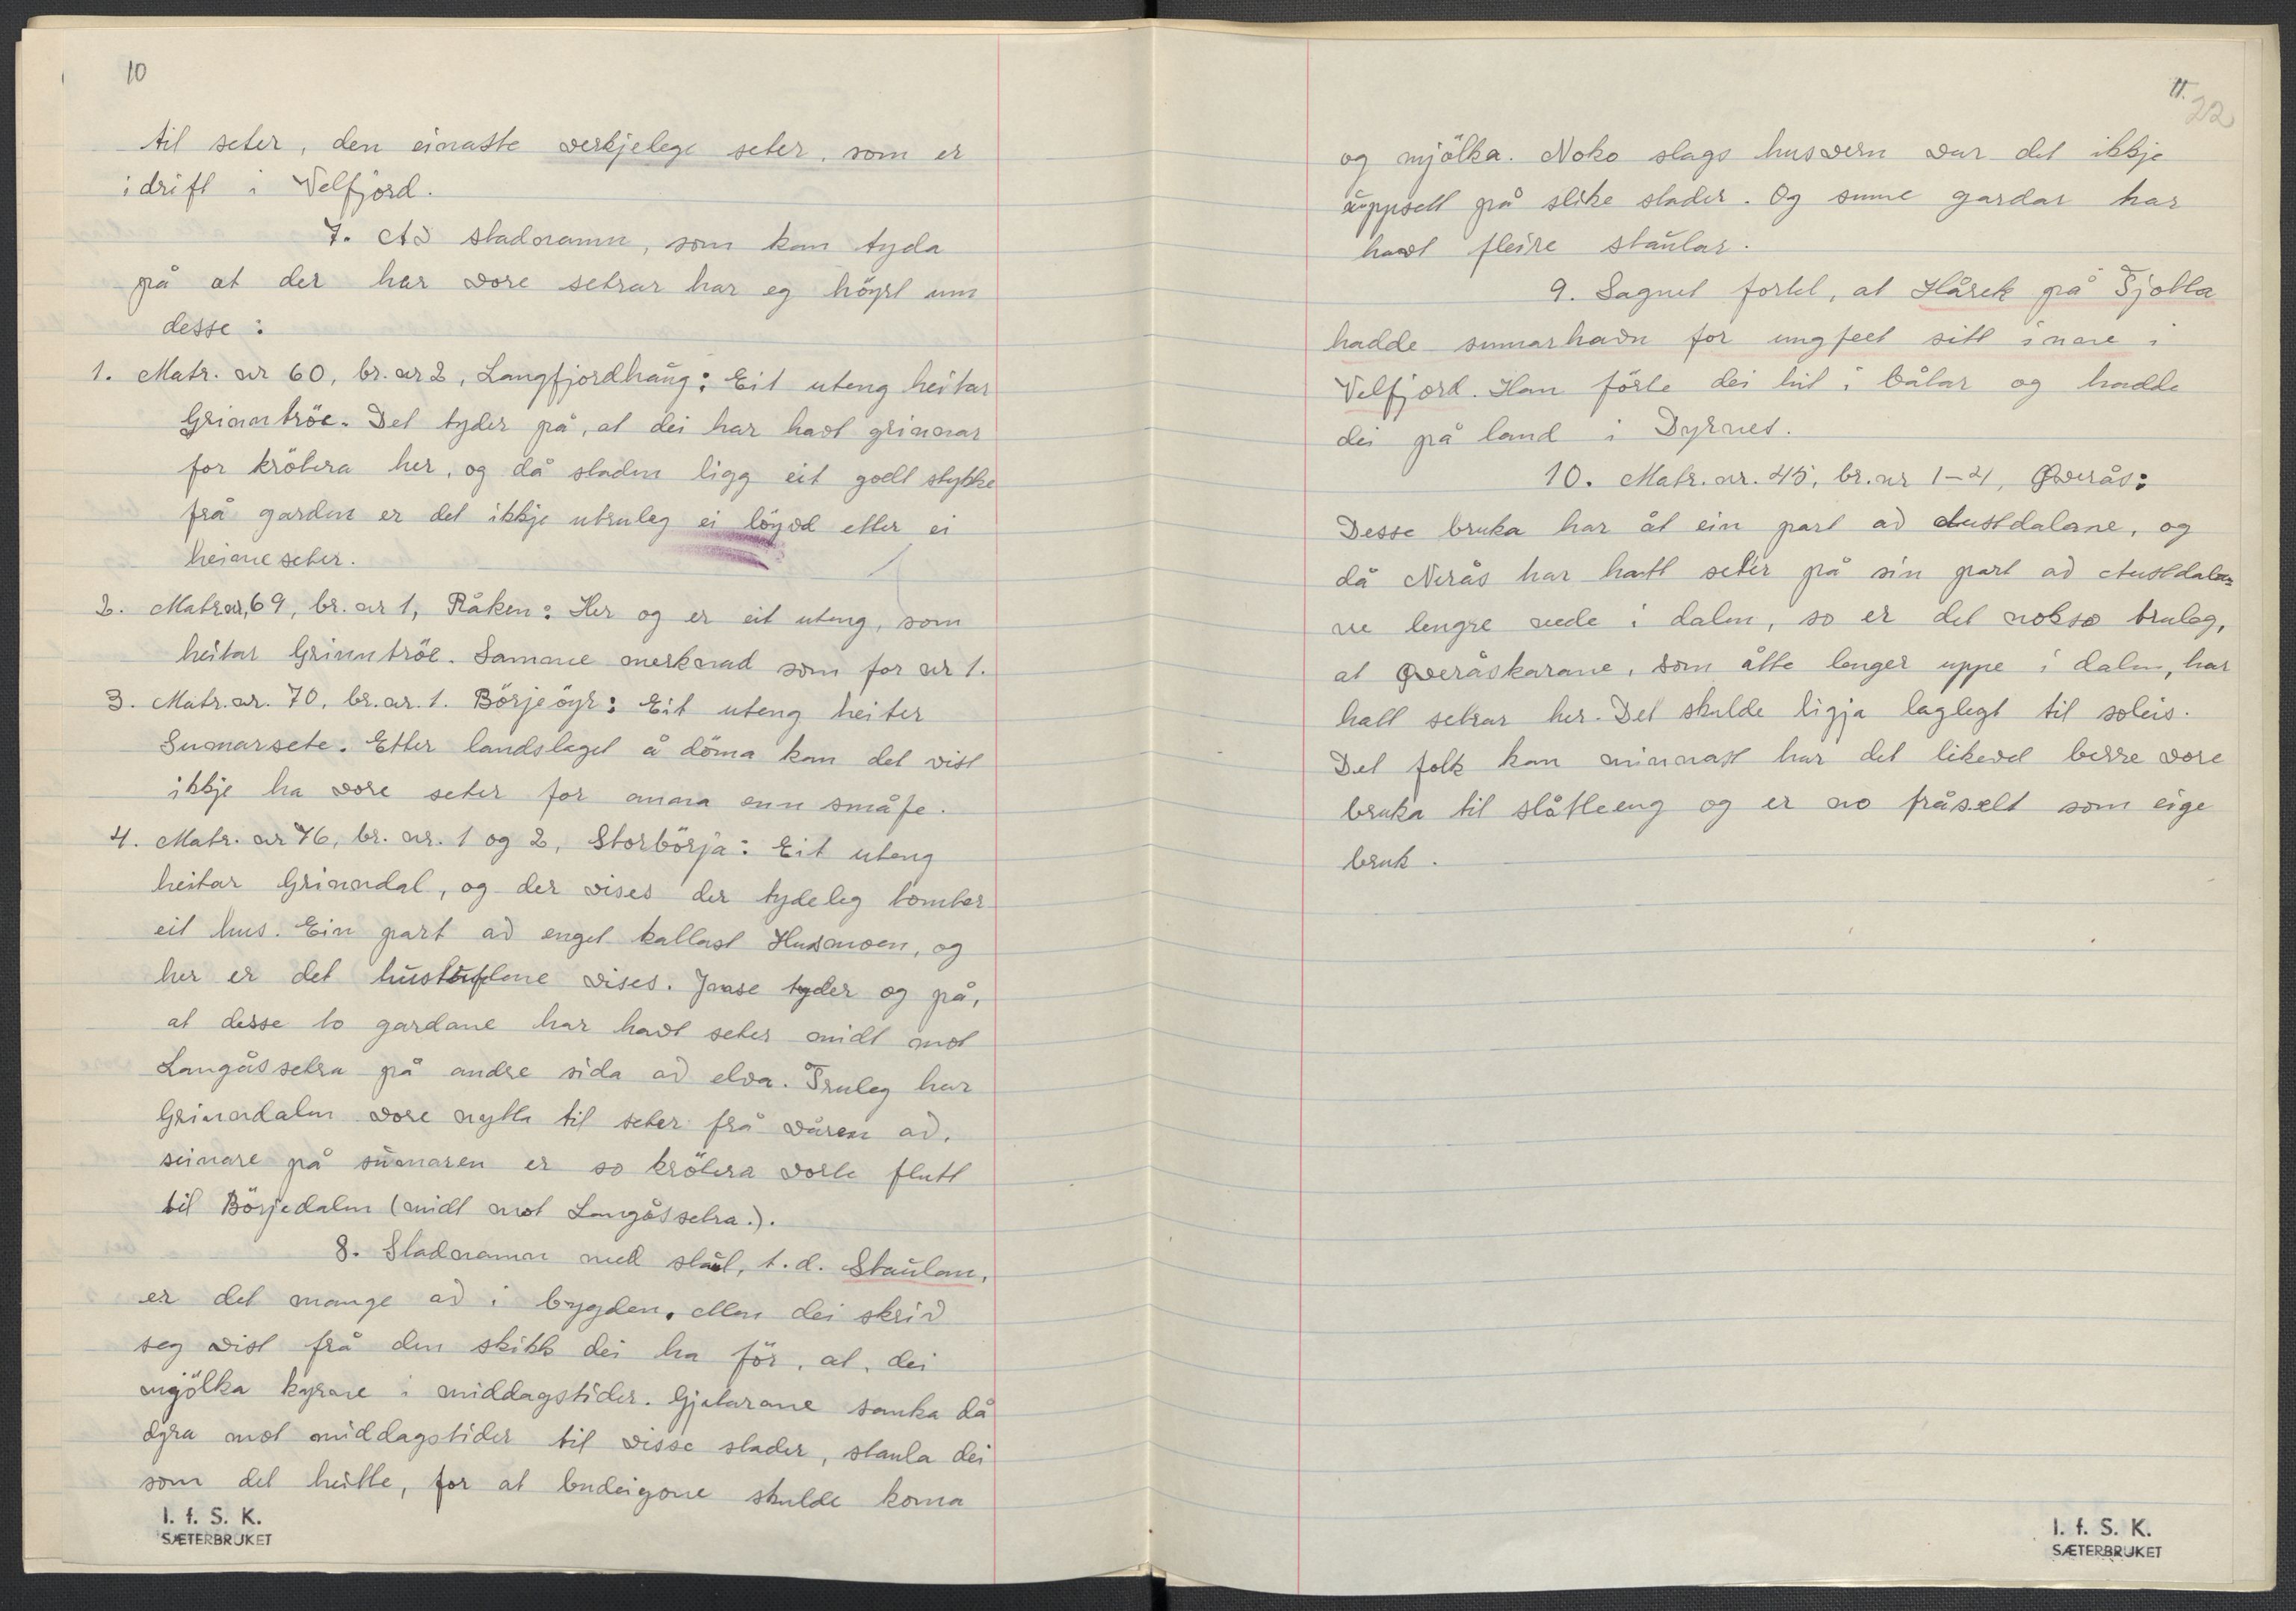 10
til seter, den einaste verkjelege seter, som er
i drift i Velfjord.
7. Av stadnamn, som kan tyda
på at der har vore setrar har eg höyrt um
desse:
1. Matr. nr 60, br. nr 2, Langfjordhaug: Eit uteng heitar
Grinntröe. Det tyder på, at dei har havt grinnar
for krötera her, og då staden ligg eit godt stykke
frå garden er det ikkje utruleg ei löyvd etter ei
heimeseter.
2. Matr. nr, 69, br. nr 1, Råken: Her og er eit uteng, som
heitar Grinntröe. Samme merknad som for nr 1.
3. Matr. nr. 70, br. nr. 1. Börjeöyr: Eit uteng heiter
Sumarsete. Etter landslaget å döma kan det vist
ikkje ha vore seter for anna enn småfe.
4. Matr. nr 76, br. nr. 1 og 2, Storbörja: Eit uteng
heitar Grinndal, og der vises der tydeleg tomter
eit hus. Ein part av enget kallast Husmoen, og
her er det hustuftene vises. Jnase tyder og på,
at desse to gardane har havt seter midt mot
Langåssetra på andre sida av elva. Truleg har
Grinndalen vore nytta til seter frå våren av,
seinare på sumaren er so krötera vorte flutt
til Börjedalen (midt mot Langåssetra.).
8. Stadnamn med staul, t.d. Staulen,
er det mange av i bygden. Men dei skriv
seg vist frå den skikk dei ha för, at dei
mjölka kyrne i middagstider. Gjetarane sanka då
dyra mot middagstider til visse stader, staula dei
som det heitte, for at budeigone skulde koma
I. f. S. K.
SÆTERBRUKET
11.
22
og mjölka. Noko slags husvern var det ikkje
uppsett på slike stader. Og sume gardar har
havt fleire staular.
9. Sagnet fortel, at Hårek på Tjotta
hadde sumarhavn for ungfeet sitt inne i
Velfjord. Han förte dei hit i båtar og hadde
dei på land i Dyrnes.
10. Matr. nr. 45, br. nr 1-4, Øverås:
Desse bruka har åt ein part av Austdalane, og
då Nerås har hatt seter på sin part av Austdala-
ne lengre nede i dalen, so er det nokso truleg,
at Øveråskarane, som åtte lenger uppe i dalen, har
hatt setrar her. Det skulde ligja laglegt til soleis.
Det folk kan minnast har det likevel berre vore
bruka til slåtteeng og er no fråselt som eige
bruk.
I. f. S. K.
SÆTERBRUKET